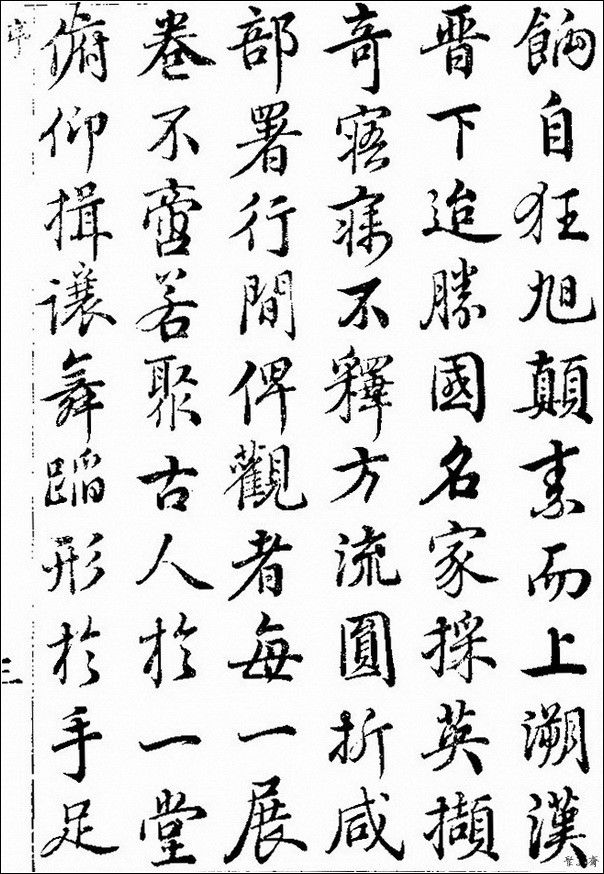 餉自狂旭顛素而上溯漢
晋下迨勝國名家採英擷
奇寤寐不釋方流圓折咸
部署行間俾觀者每一展
卷不啻若聚古人於一堂
俯仰揖讓舞蹈形於手足
序
三